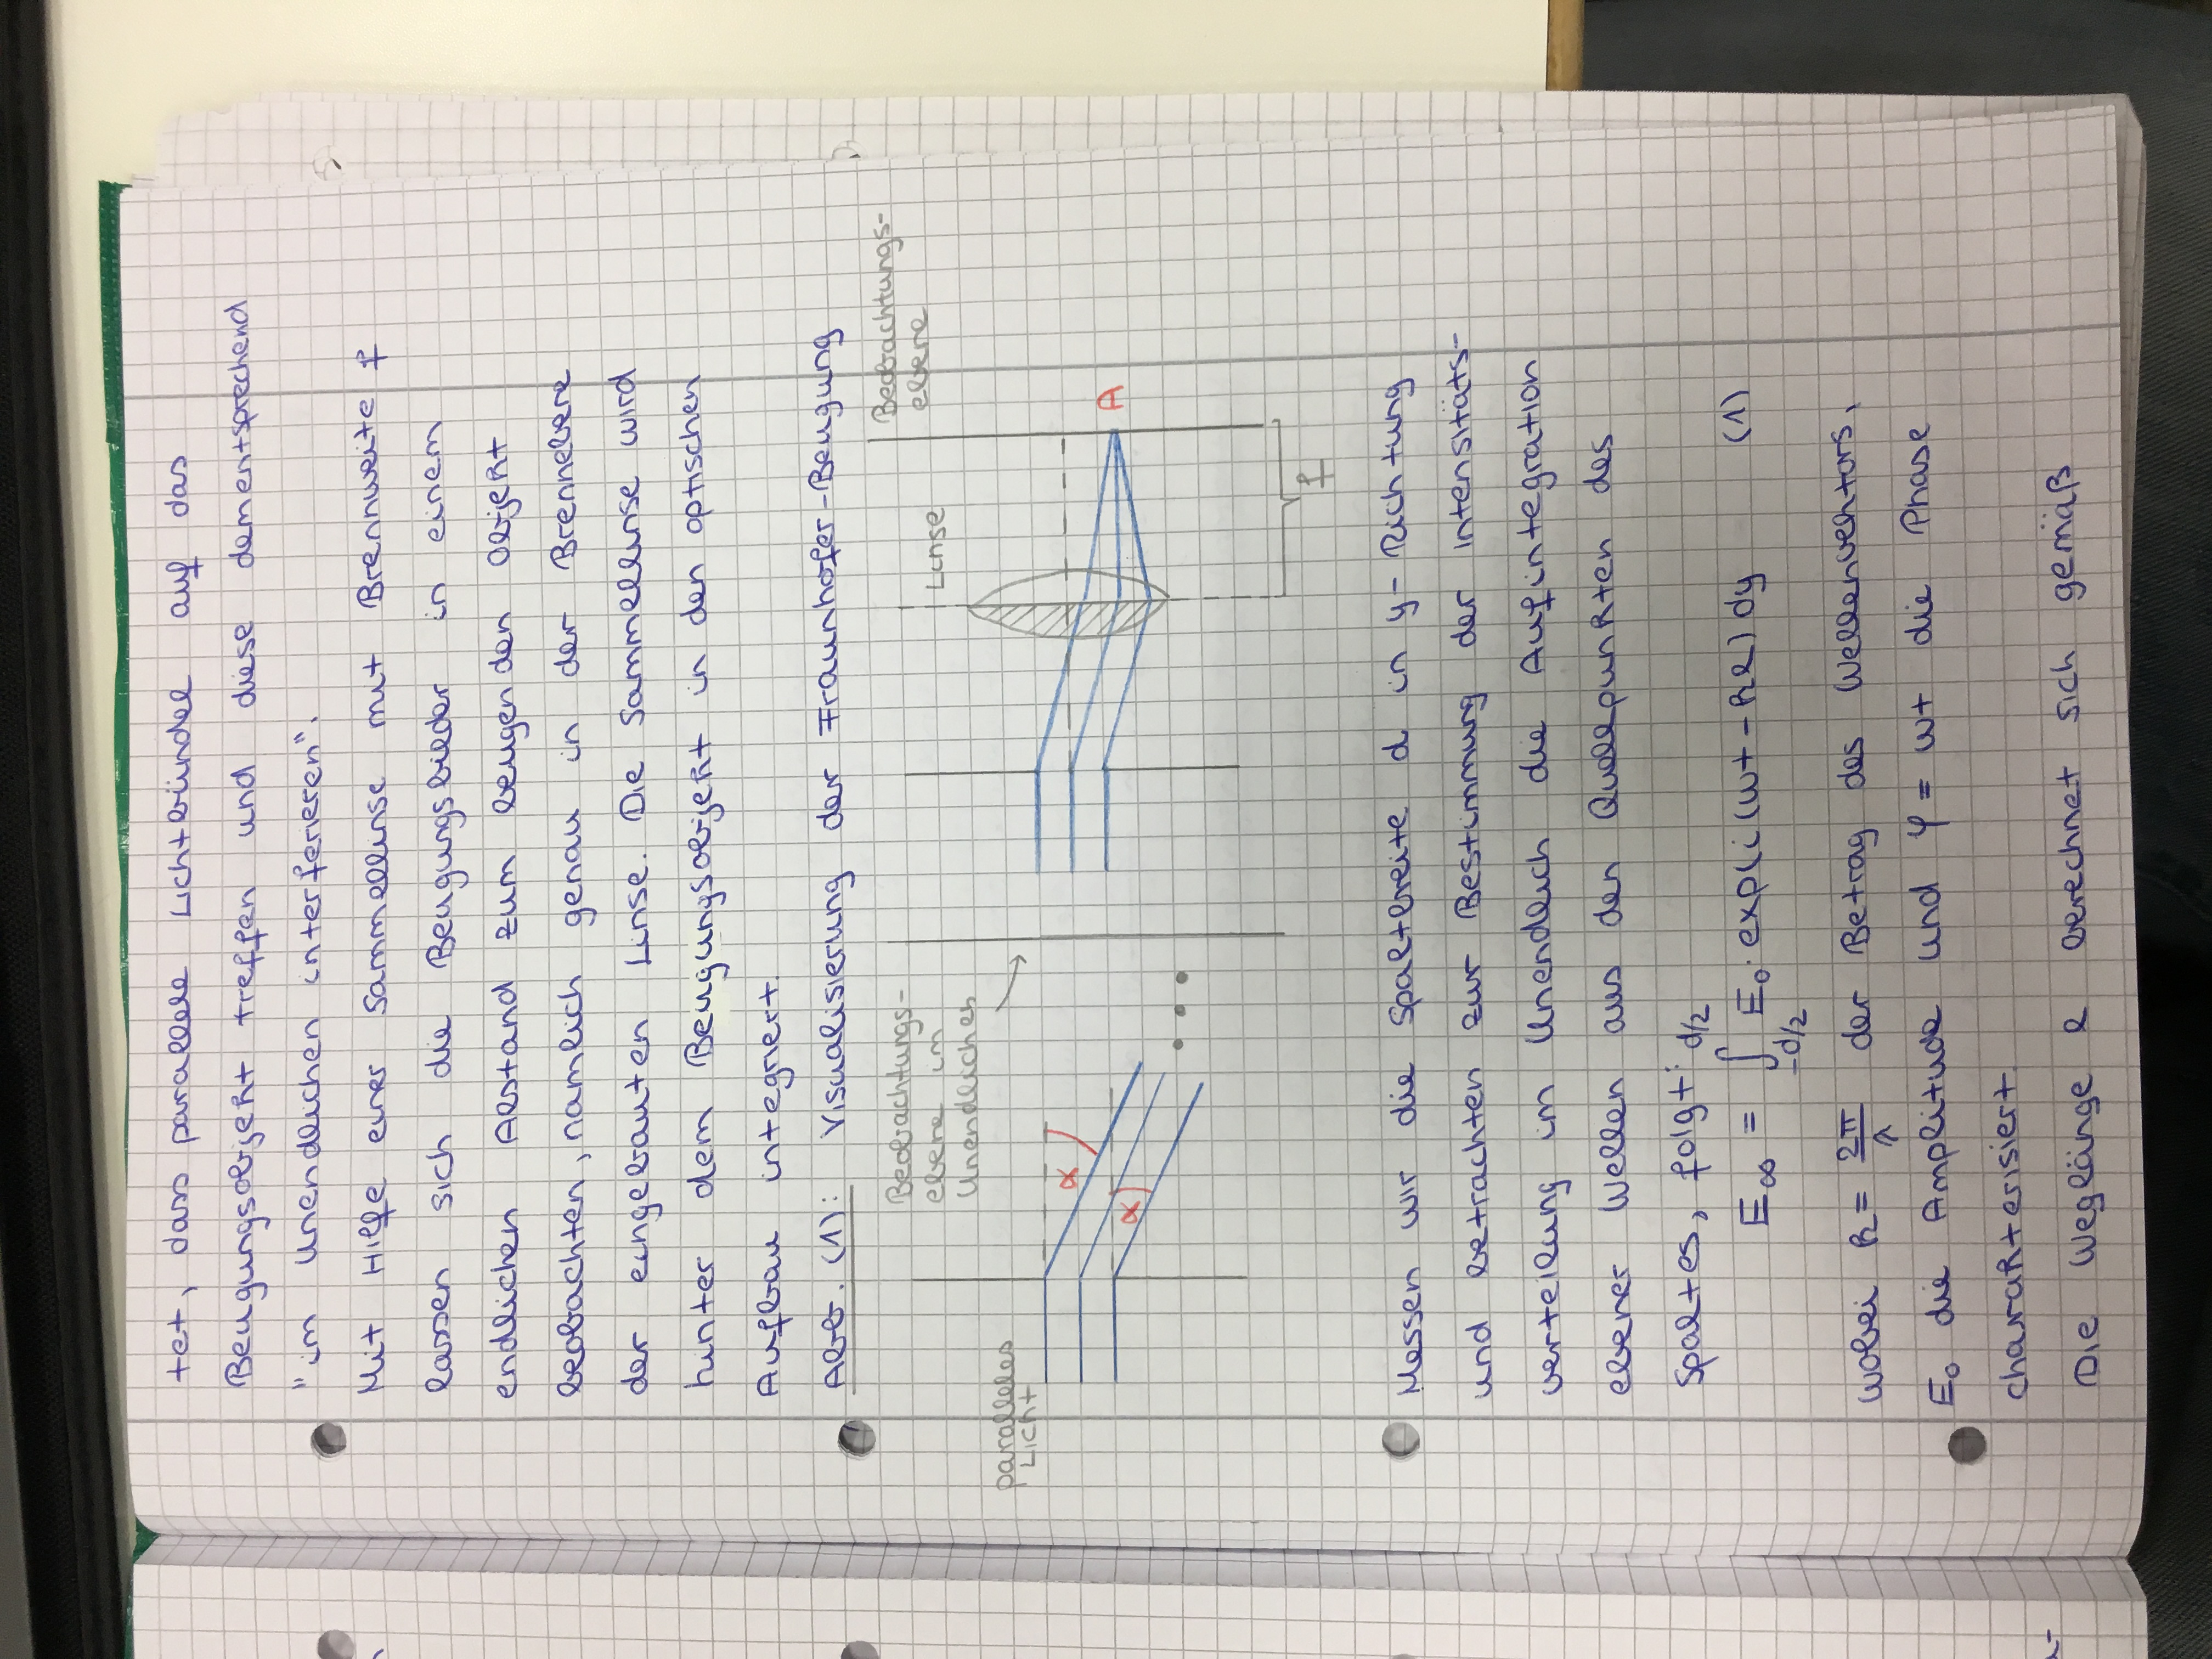 tet, dass parallele Lichtbündel auf das
Beugungsobjekt treffen und diese dementsprechend
"im Unendlichen interferieren".
Mit Hilfe einer Sammellinse mit Brennweite f
lassen sich die Beugungsbilder in einem
endlichen Abstand zum beugenden Objekt
beobachten, namlich genau in der Brennebene
der eingebauten Linse. Die Sammellinse wird
hinter dem Beugungsobjekt in den optischen
Aufbau integriert.
Abb. (1): Visualisierung der Fraunhofer-Beugung
Beobachtungs-
ebene im
Unendlichen
paralleles
Licht
α
α
Linse
Beobachtungs-
ebene
A
f
Messen wir die Spaltbreite d in y-Richtung
und betrachten zur Bestimmung der Intensitäts-
verteilung im Unendlich die Aufintegration
ebener Wellen aus den Quellpunkten des
Spaltes, folgt:
E∞ = ∫_{-d/2}^{d/2} E₀ · exp(i(ωt - kl) dy (1)
wobei k = 2π/λ der Betrag des Wellenvektors,
E₀ die Amplitude und φ = ωt die Phase
charakterisiert.
Die Weglänge l berechnet sich gemäß